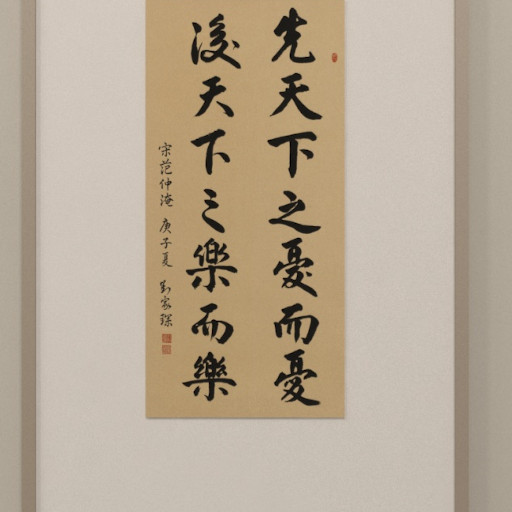 先天下之憂而憂
後天下之樂而樂
宋范仲淹 庚子夏 劉家琛